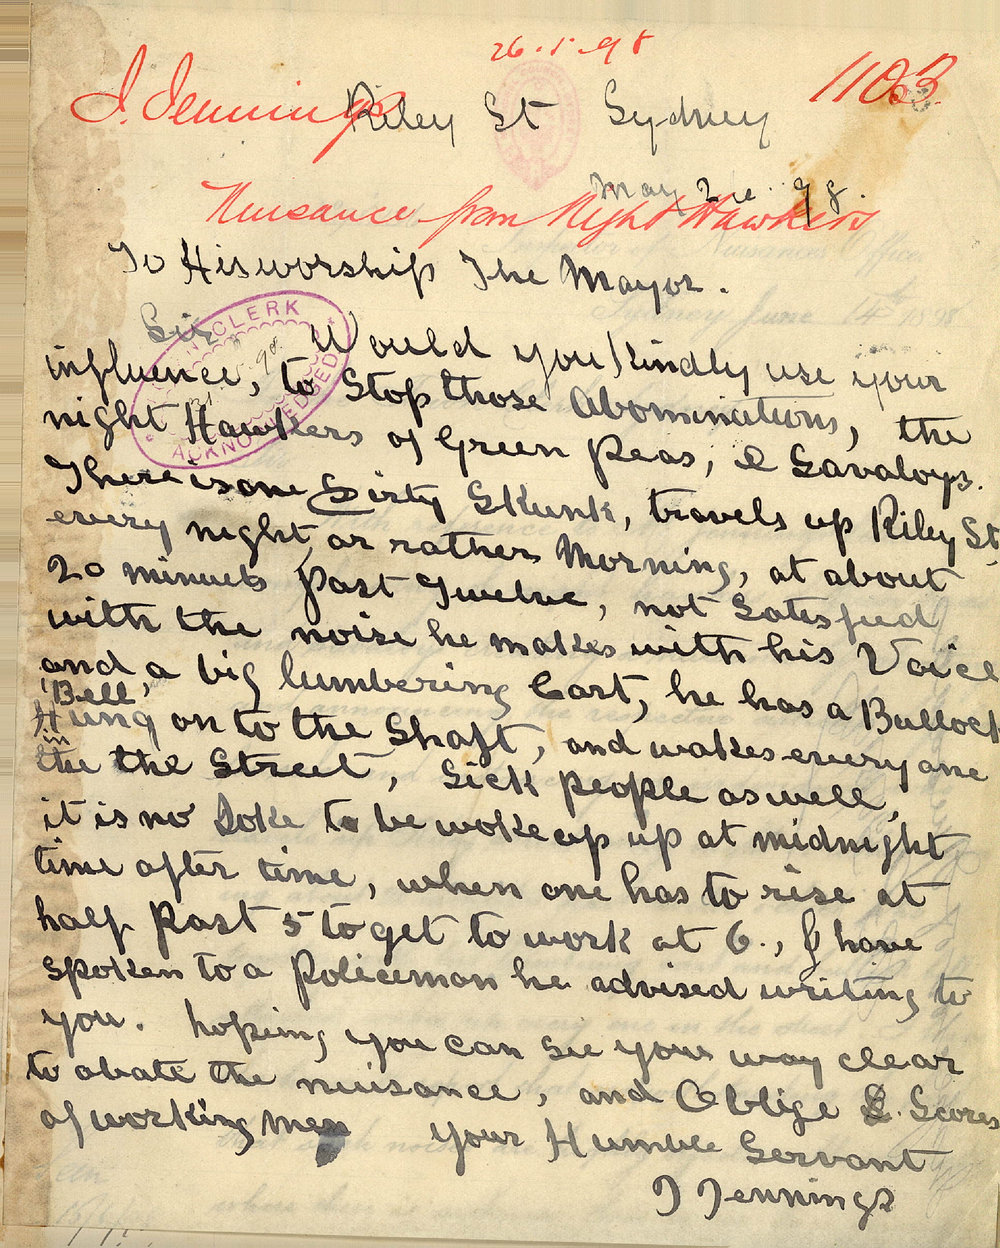 26.5.98
J. Jennings
1103
Riley St Sydney
May 98.
Nuisance from Night Hawkers
To His worship The Mayor.
Sir Would you kindly use your
influence, to Stop those Abominations, the
night Hawkers of Green Peas, & Savaloys.
There is one Dirty Skunk, travels up Riley St
every night, or rather Morning, at about
20 minuets past Twelve, not Satesfied
with the noise he makes with his Voice
and a big lumbering Cart, he has a Bullock
Bell
Hung on to the Shaft, and wakes every one
in
the the Street, Sick people as well,
it is no Joke to be woke up up at midnight
time after time, when one has to rise at
half past 5 to get to work at 6., I have
spoken to a Policeman he advised writing to
you. hoping you can see your way clear
to abate the nuisance, and Oblige Scores
of working men your Humble Servant
J Jennings
CLERK
ACKNOWLEDGED